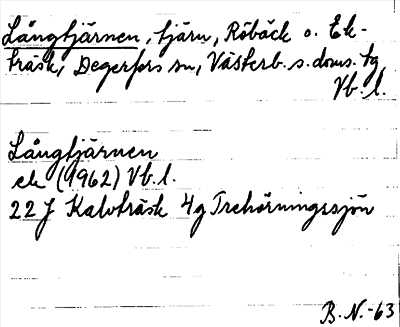 Långtjärnen, tjärn, Röbäck o. Ek-
träsk, Degerfors sn, Västerb. s. doms. tg
Vb. l.
Långtjärnen
ek (1962) Vb. l.
22 J Kalvträsk 4g Trehörningssjön
B. N. -63